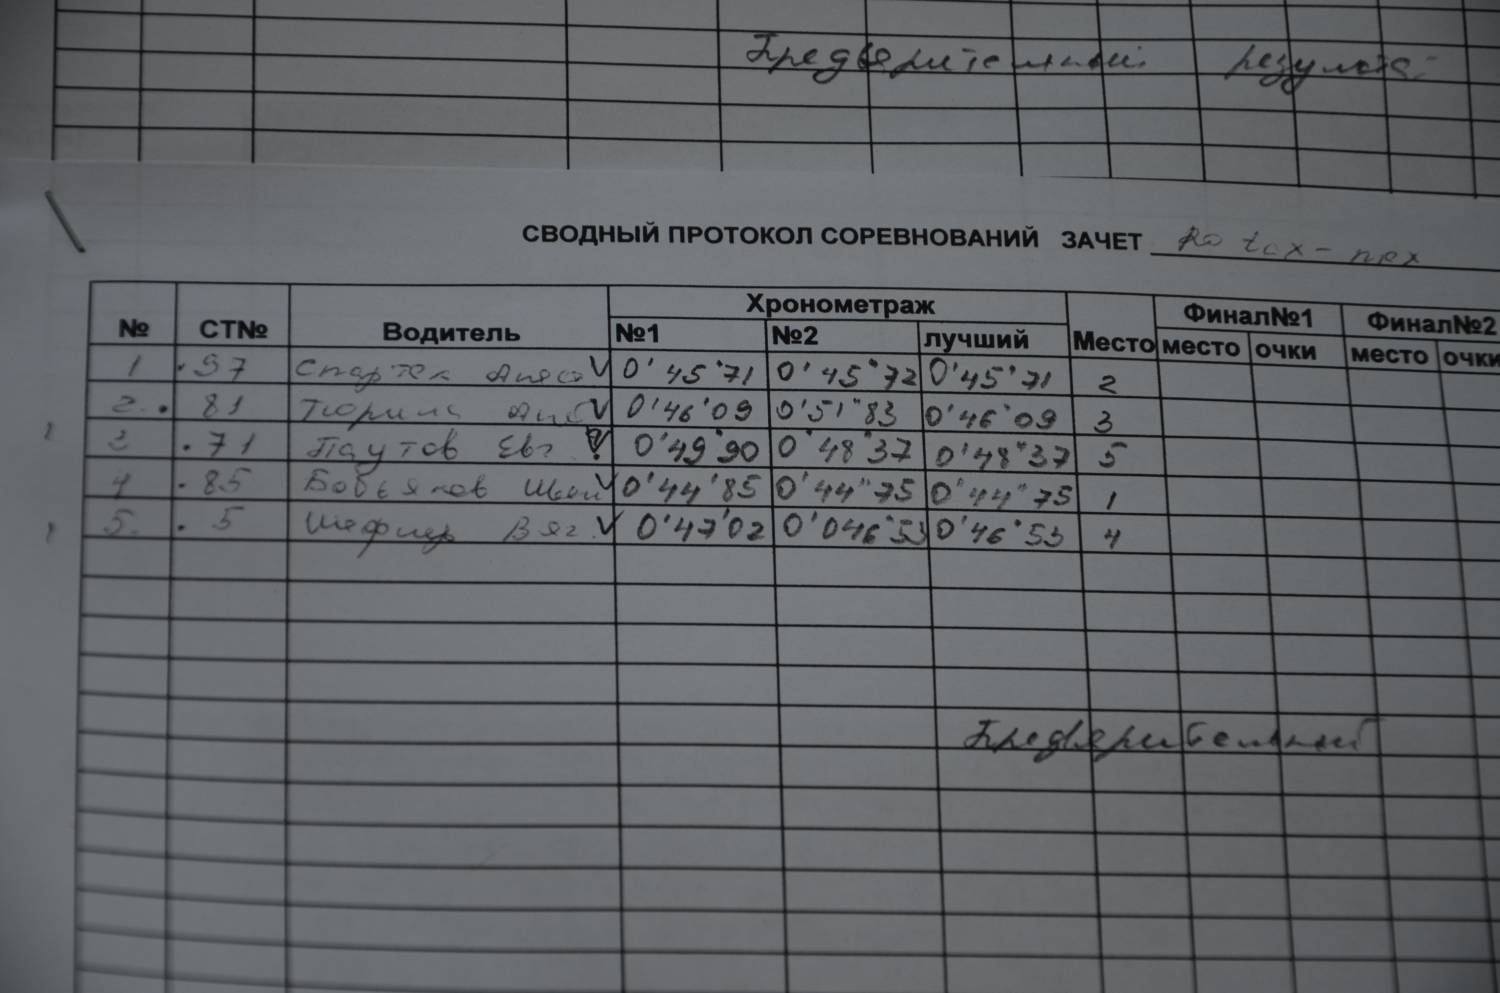 Предварительный
СВОДНЫЙ ПРОТОКОЛ СОРЕВНОВАНИЙ ЗАЧЕТ Rotax-max
№ СТ№ Водитель Хронометраж №1 №2 лучший Место Финал№1 место очки Финал№2 место очки
1 97 Спартак V 0'45"71 0'45"72 0'45"71 2
2. 81 V 0'46'09 0'51"83 0'46"09 3
3 71 Паутов Евг. 0'49"90 0'48"37 0'48"37 5
4 85 V 0'44'85 0'44"75 0'44"75 1
5. 5 Вяч. V 0'47'02 0'046"53 0'46"53 4
Предварительный